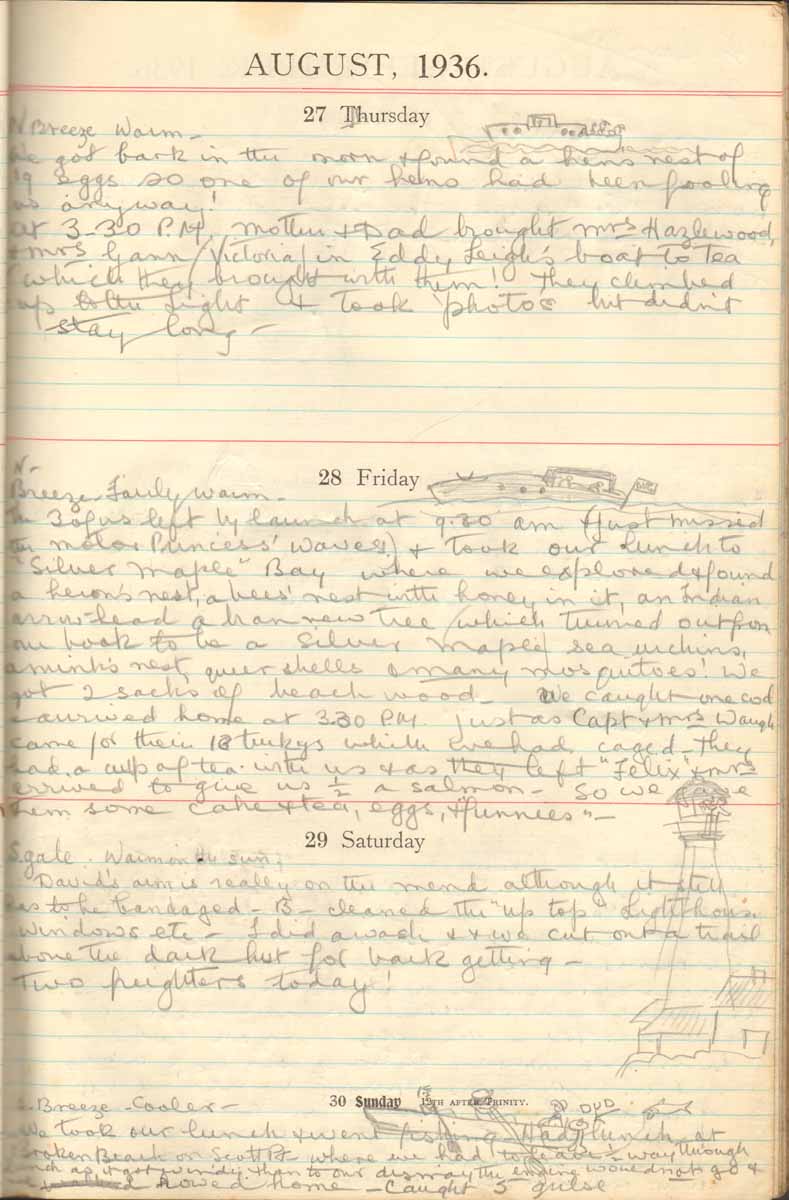 AUGUST, 1936.
27 Thursday
N Breeze Warm -
We got back in the morn & found a hens nest of
19 eggs so one of our hens had been fooling
us anyway!
at 3-30 P.M. mother & Dad brought Mrs Hazlewood,
& Mrs Gann (Victoria) in Eddy Leigh's boat to Tea
(which they brought with them! They climbed
up to the Light & took photos but didn't
stay long -
28 Friday
N-
Breeze - Fairly warm -
The 3 of us left by launch at 9.30 am (just missed
the motor Princess' waves) & took our lunch to
"Silver Maple" Bay where we explored & found
a heron's nest, a bees' nest with honey in it, an Indian
arrow-head a bran new Tree (which turned out from
our book to be a Silver maple) sea urchins,
a mink's nest, queer shells & many mosquitoes! We
got 2 sacks of beach wood - We caught one cod
& arrived home at 3.30 P.M. just as Capt & Mrs Waugh
came for their 18 turkys which we had caged - They
had a cup of tea with us & as they left "Felix" & mrs
arrived to give us ½ a salmon - So we gave
them some cake & tea, eggs, & "funnies" -
29 Saturday
S. gale. Warm in the sun.
David's arm is really on the mend although it still
has to be bandaged - B - cleaned the "up top" Lighthouse
windows etc - I did a wash & we cut out a trail
above the dark hut for bark getting -
Two freighters today!
30 Sunday 12TH AFTER TRINITY.
Breeze - Cooler -
DVD
We took our lunch & went fishing Had lunch at
Broken Beach on Scott Pt where we had to leave ½ way through
lunch as it got windy then to our dismay the engine would not go &
we rowed home - Caught 5